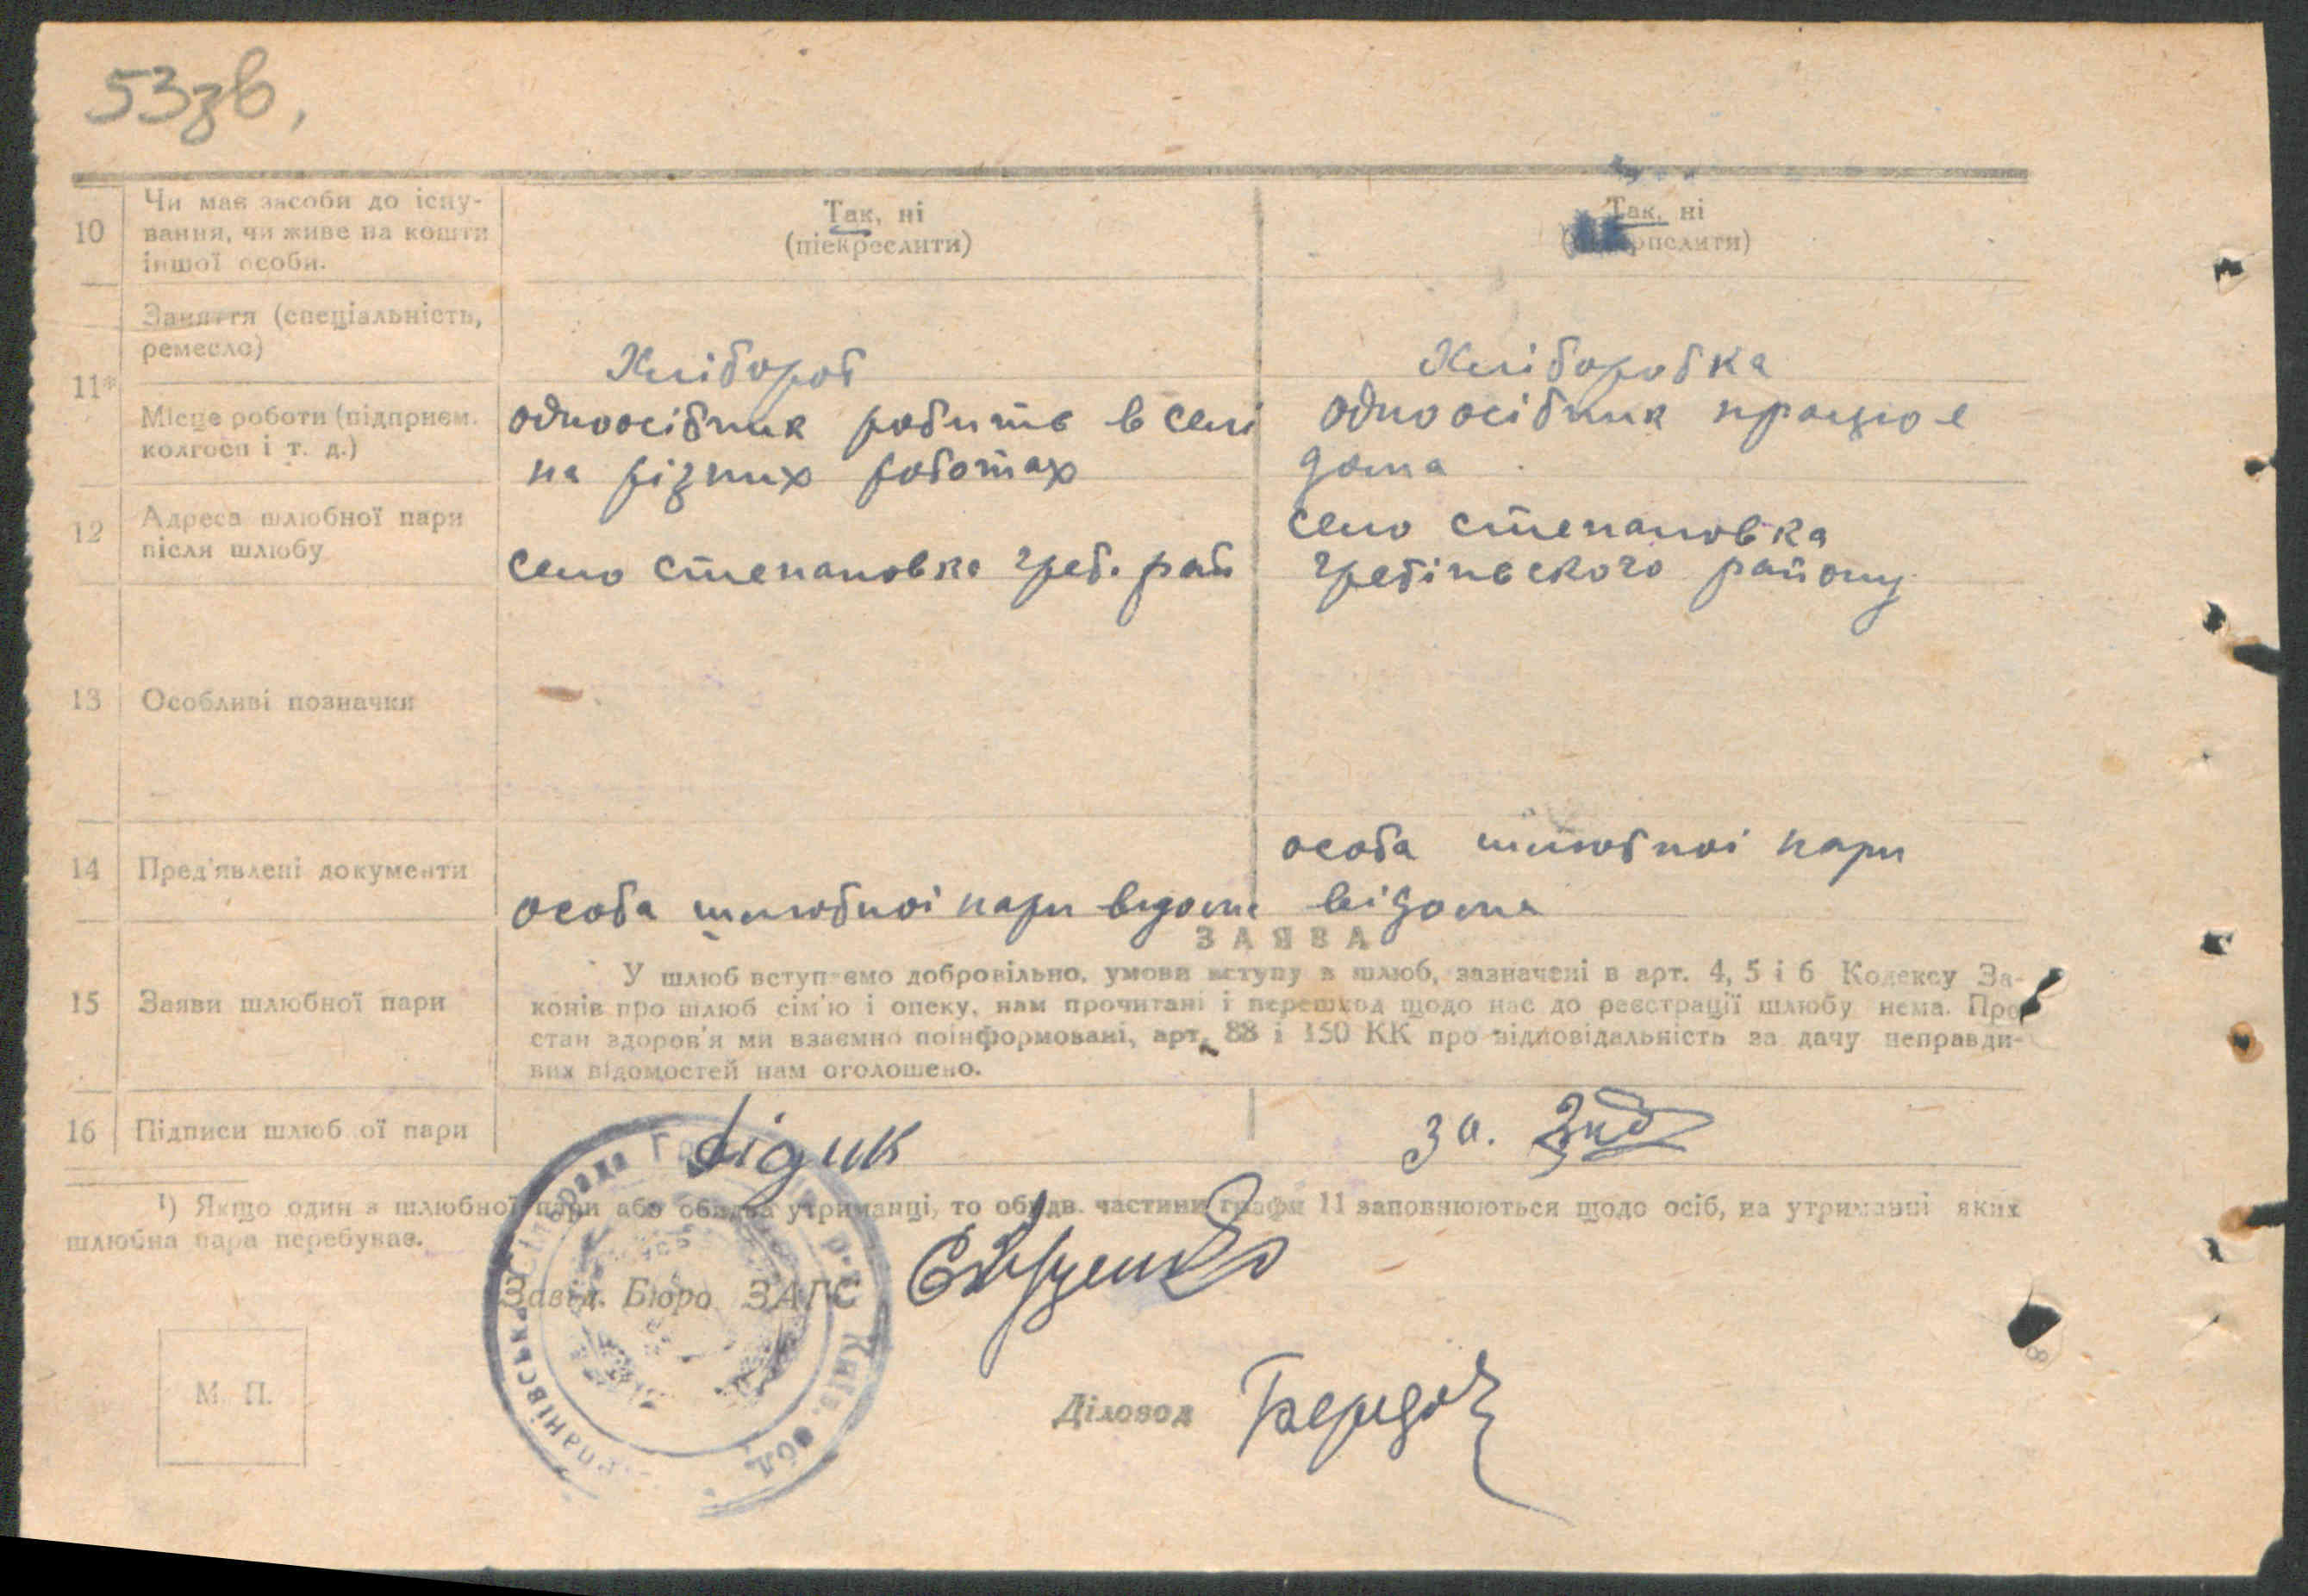 53зв,
10
Чи має засоби до існу-
вання, чи живе на кошти
іншої особи.
Так, ні
(піекреслити)
Так, ні
11*
Заняття (спеціальність,
ремесло)
Хлібороб
Хліборобка
Місце роботи (підприєм.
колгосп і т. д.)
одноосібник робить в селі
на різних роботах
одноосібник працює
дома
12
Адреса шлюбної пари
після шлюбу
село степановка греб. рай
село степановка
гребінвского району
13
Особливі позначки
14
Пред'явлені документи
особа шлюбноі пари відома
особа шлюбноі пари
відома
15
Заяви шлюбної пари
ЗАЯВА
У шлюб вступ-ємо добровільно, умови вступу в шлюб, зазначені в арт. 4, 5 і 6 Кодексу За-
конів про шлюб сім'ю і опеку, нам прочитані і перешкод щодо нас до реєстрації шлюбу нема. Про
стан здоров'я ми взаємно поінформовані, арт. 88 і 150 КК про відповідальність за дачу неправди-
вих відомостей нам оголошено.
16
Підписи шлюб ої пари
Дідик
за.
¹) Якщо один з шлюбної пари або обидва утриманці, то обидв. частини графи 11 заповнюються щодо осіб, на утриманні яких
шлюбна пара перебуває.
Завід. Бюро ЗАГС
М. П.
Діловод
сільрада
р. Київ. обл.